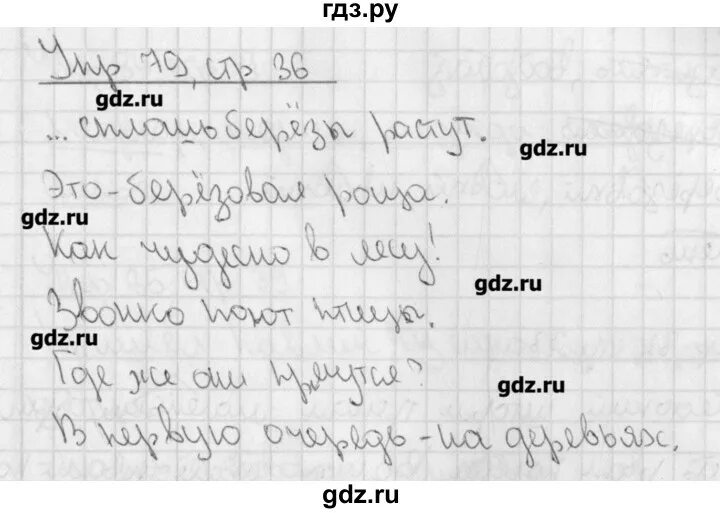 гдз.ру
Упр 79, стр 36
gdz.ru
... сплошь берёзы растут.
gdz.ru
Это - берёзовая роща.
gdz.ru
Как чудесно в лесу!
gdz.ru
Звонко поют птицы.
gdz.ru
Где же они прячутся?
gdz.ru
В первую очередь - на деревьях.
gdz.ru